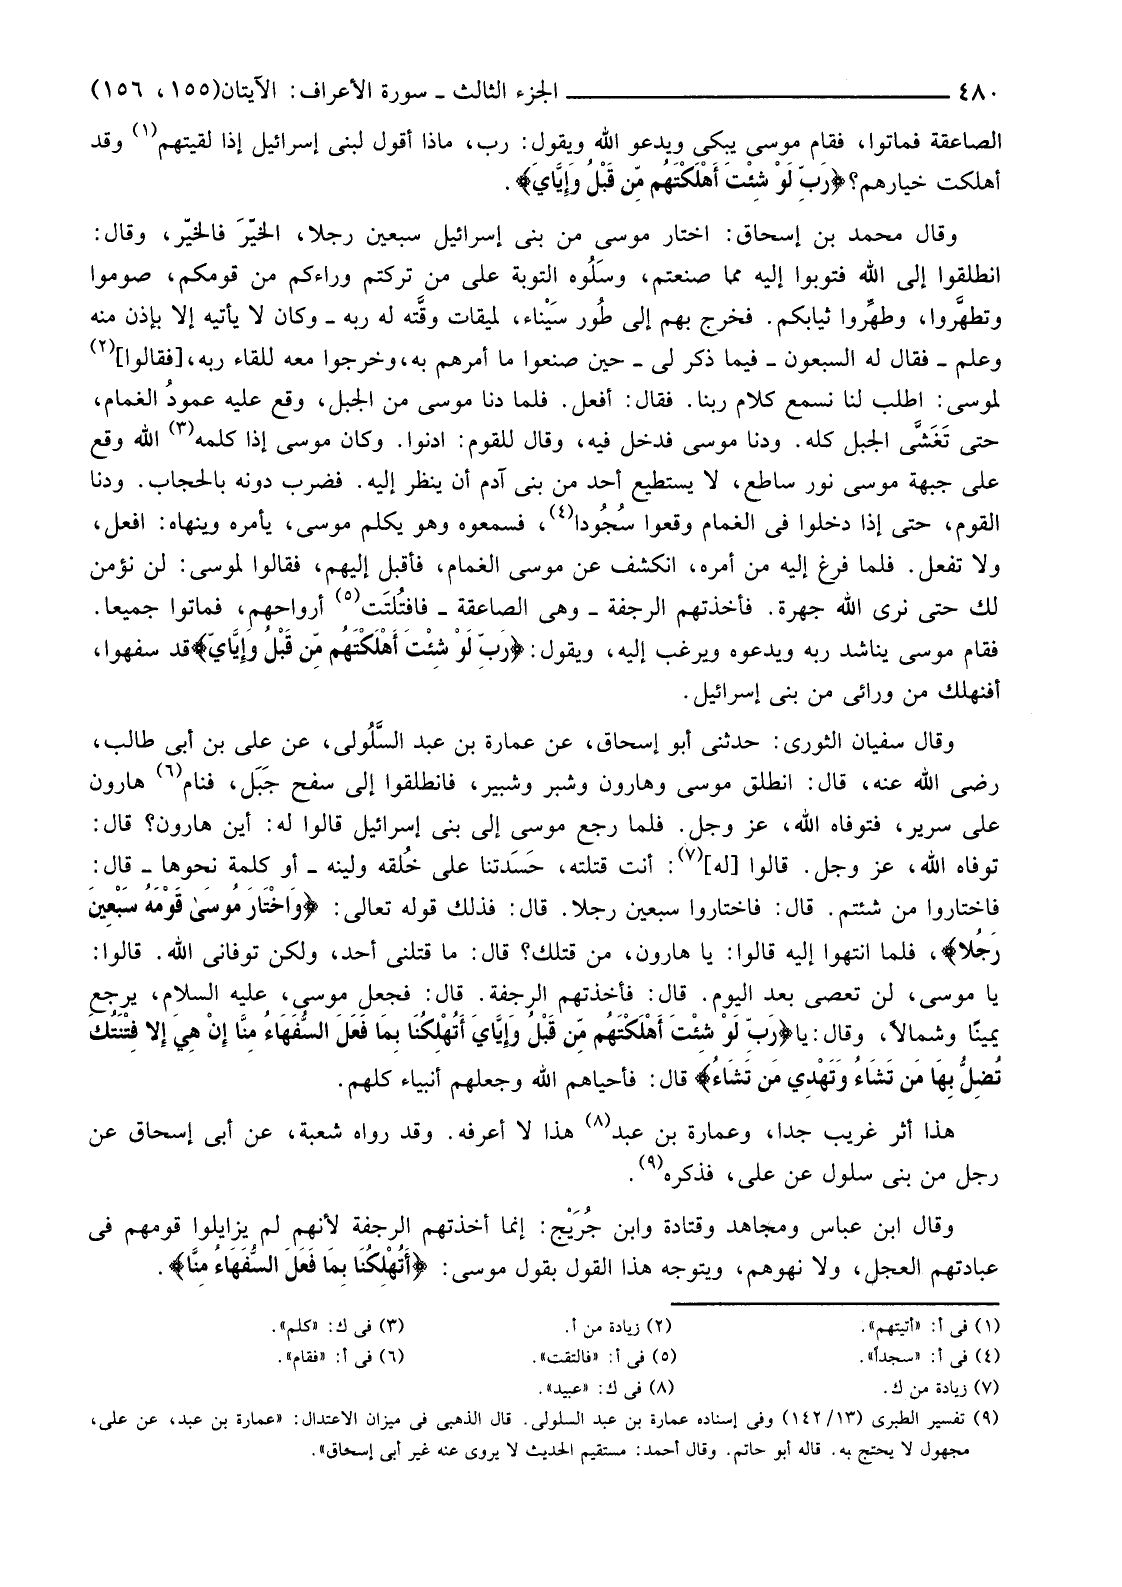 ٤٨٠ ــــــ الجزء الثالث ـ سورة الأعراف: الآيتان(١٥٥، ١٥٦)
الصاعقة فماتوا، فقام موسى يبكى ويدعو الله ويقول: رب، ماذا أقول لبنى إسرائيل إذا لقيتهم(١) وقد
أهلكت خيارهم؟﴿رَبِّ لَوْ شِئْتَ أَهْلَكْتَهُم مِّن قَبْلُ وَإِيَّايَ﴾.
وقال محمد بن إسحاق: اختار موسى من بنى إسرائيل سبعين رجلا، الخيّرَ فالخيّر، وقال:
انطلقوا إلى الله فتوبوا إليه مما صنعتم، وسَلُوه التوبة على من تركتم وراءكم من قومكم، صوموا
وتطهَّروا، وطهِّروا ثيابكم. فخرج بهم إلى طُور سَيْناء، لميقات وقَّته له ربه ـ وكان لا يأتيه إلا بإذن منه
وعلم ـ فقال له السبعون ـ فيما ذكر لى ـ حين صنعوا ما أمرهم به،وخرجوا معه للقاء ربه،[فقالوا](٢)
لموسى: اطلب لنا نسمع كلام ربنا. فقال: أفعل. فلما دنا موسى من الجبل، وقع عليه عمودُ الغمام،
حتى تَغَشَّى الجبل كله. ودنا موسى فدخل فيه، وقال للقوم: ادنوا. وكان موسى إذا كلمه(٣) الله وقع
على جبهة موسى نور ساطع، لا يستطيع أحد من بنى آدم أن ينظر إليه. فضرب دونه بالحجاب. ودنا
القوم، حتى إذا دخلوا فى الغمام وقعوا سُجُودا(٤)، فسمعوه وهو يكلم موسى، يأمره وينهاه: افعل،
ولا تفعل. فلما فرغ إليه من أمره، انكشف عن موسى الغمام، فأقبل إليهم، فقالوا لموسى: لن نؤمن
لك حتى نرى الله جهرة. فأخذتهم الرجفة ـ وهى الصاعقة ـ فافتُلتَت(٥) أرواحهم، فماتوا جميعا.
فقام موسى يناشد ربه ويدعوه ويرغب إليه، ويقول:﴿رَبِّ لَوْ شِئْتَ أَهْلَكْتَهُم مِّن قَبْلُ وَإِيَّايَ﴾قد سفهوا،
أفنهلك من ورائى من بنى إسرائيل.
وقال سفيان الثورى: حدثنى أبو إسحاق، عن عمارة بن عبد السَّلُولى، عن على بن أبى طالب،
رضى الله عنه، قال: انطلق موسى وهارون وشبر وشبير، فانطلقوا إلى سفح جَبَل، فنام(٦) هارون
على سرير، فتوفاه الله، عز وجل. فلما رجع موسى إلى بنى إسرائيل قالوا له: أين هارون؟ قال:
توفاه الله، عز وجل. قالوا [له](٧): أنت قتلته، حَسَدتنا على خُلقه ولينه ـ أو كلمة نحوها ـ قال:
فاختاروا من شئتم. قال: فاختاروا سبعين رجلا. قال: فذلك قوله تعالى: ﴿وَاخْتَارَ مُوسَىٰ قَوْمَهُ سَبْعِينَ
رَجُلا﴾، فلما انتهوا إليه قالوا: يا هارون، من قتلك؟ قال: ما قتلنى أحد، ولكن توفانى الله. قالوا:
يا موسى، لن تعصى بعد اليوم. قال: فأخذتهم الرجفة. قال: فجعل موسى، عليه السلام، يرجع
يمينًا وشمالاً، وقال:يا﴿رَبِّ لَوْ شِئْتَ أَهْلَكْتَهُم مِّن قَبْلُ وَإِيَّايَ أَتُهْلِكُنَا بِمَا فَعَلَ السُّفَهَاءُ مِنَّا إِنْ هِيَ إِلا فِتْنَتُكَ
تُضِلُّ بِهَا مَن تَشَاءُ وَتَهْدِي مَن تَشَاءُ﴾ قال: فأحياهم الله وجعلهم أنبياء كلهم.
هذا أثر غريب جدا، وعمارة بن عبد(٨) هذا لا أعرفه. وقد رواه شعبة، عن أبى إسحاق عن
رجل من بنى سلول عن على، فذكره(٩).
وقال ابن عباس ومجاهد وقتادة وابن جُرَيْج: إنما أخذتهم الرجفة لأنهم لم يزايلوا قومهم فى
عبادتهم العجل، ولا نهوهم، ويتوجه هذا القول بقول موسى: ﴿أَتُهْلِكُنَا بِمَا فَعَلَ السُّفَهَاءُ مِنَّا﴾.
(١) فى أ: «أتيتهم». (٢) زيادة من أ. (٣) فى ك: «كلم».
(٤) فى أ: «سجداً». (٥) فى أ: «فالتقت». (٦) فى أ: «فقام».
(٧) زيادة من ك. (٨) فى ك: «عبيد».
(٩) تفسير الطبرى (١٣/ ١٤٢) وفى إسناده عمارة بن عبد السلولى. قال الذهبى فى ميزان الاعتدال: «عمارة بن عبد، عن على،
مجهول لا يحتج به. قاله أبو حاتم. وقال أحمد: مستقيم الحديث لا يروى عنه غير أبى إسحاق».